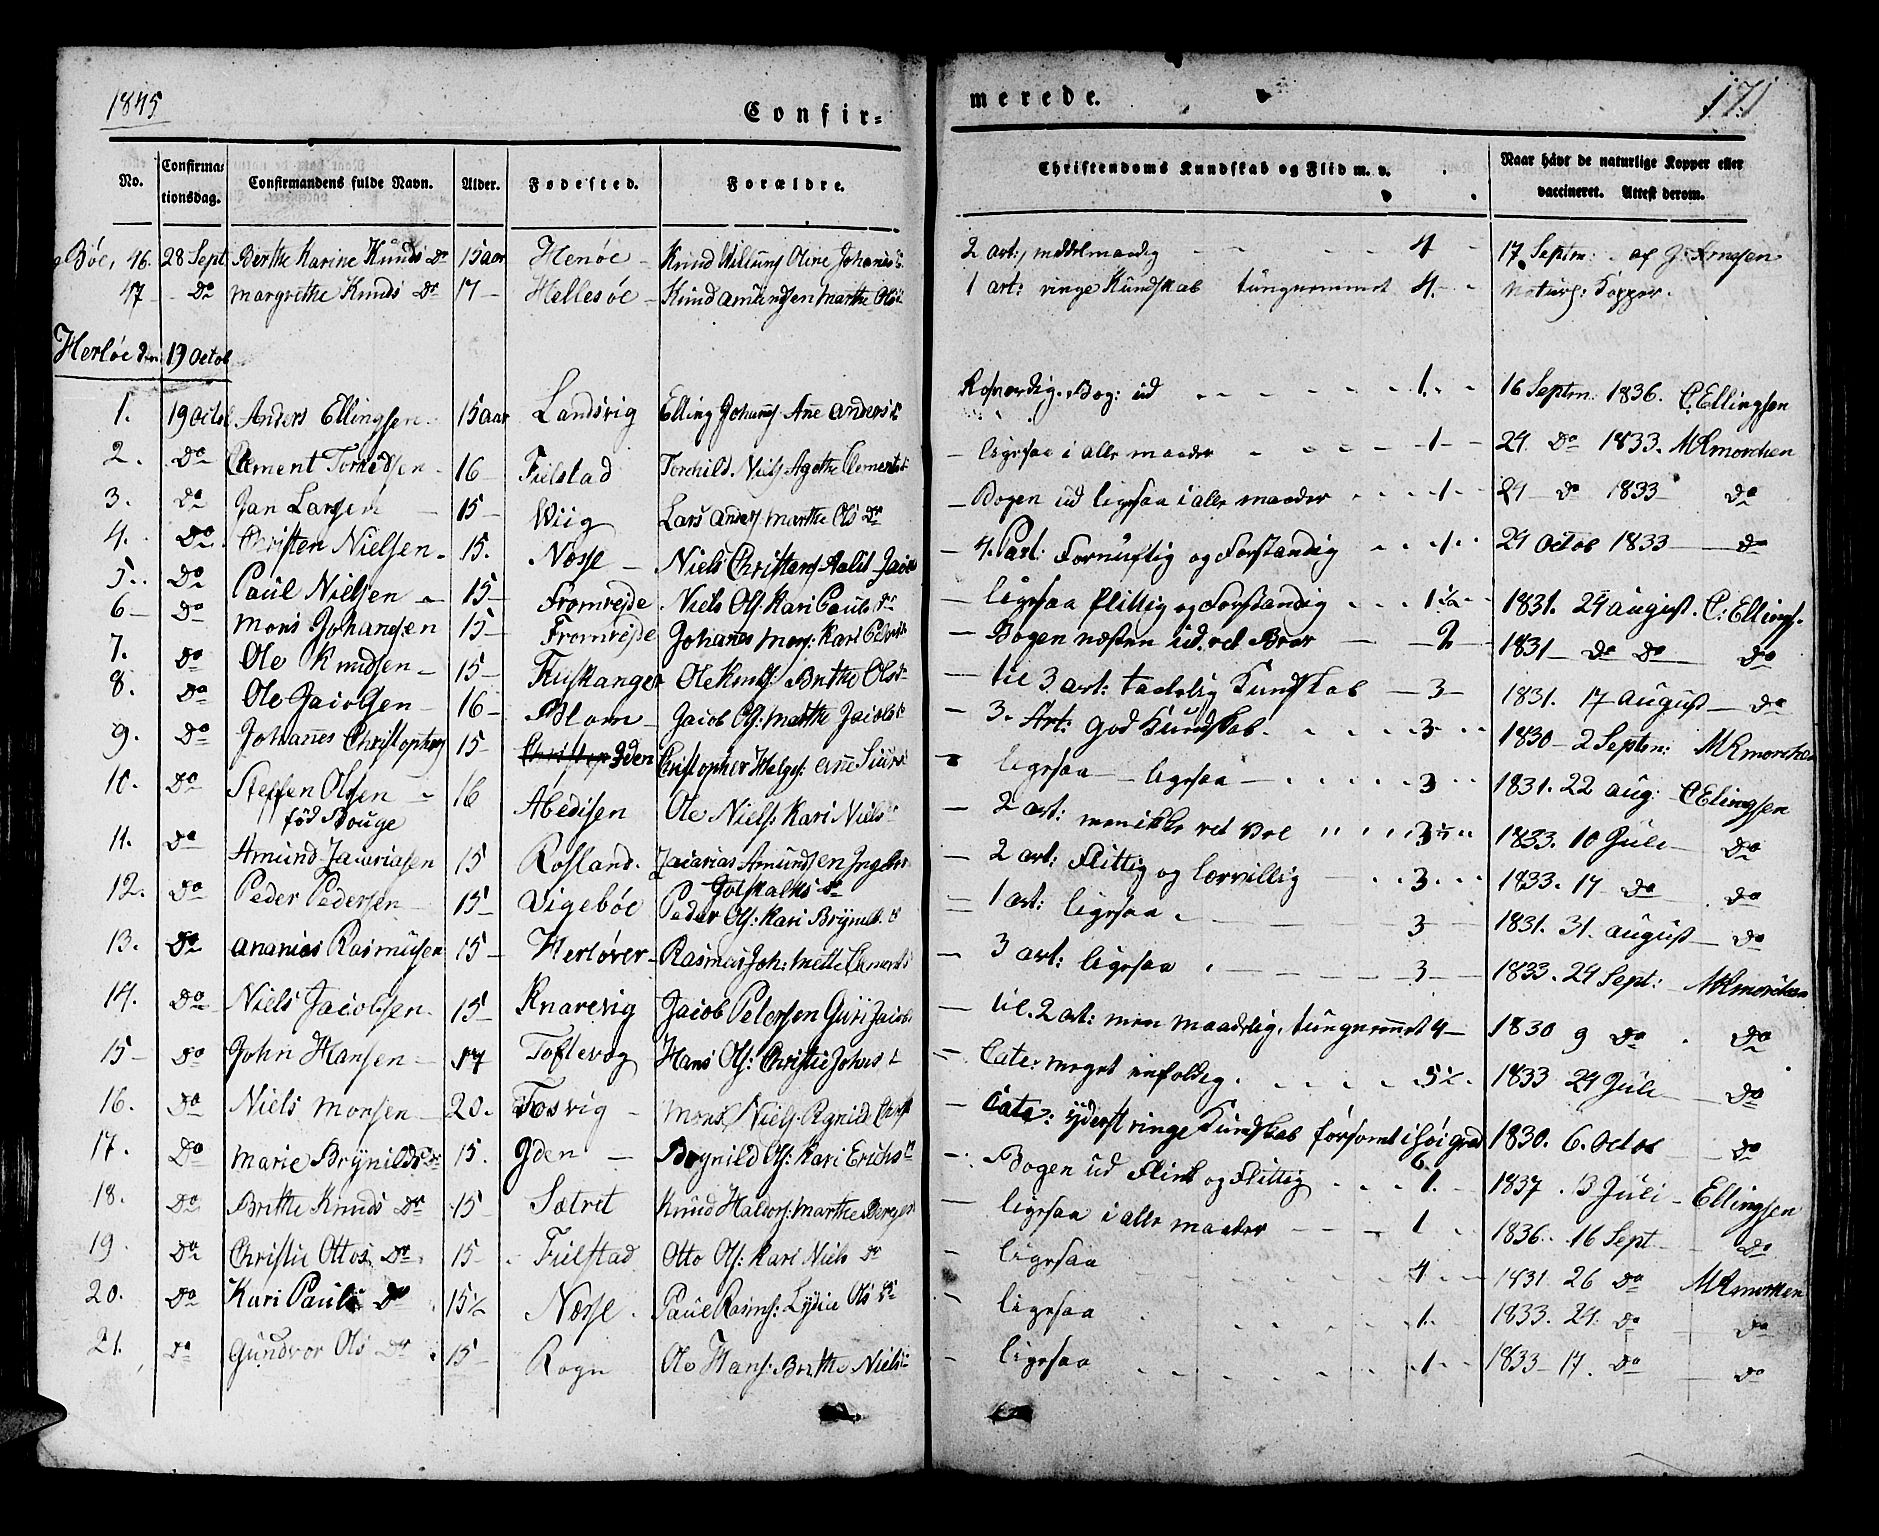 1845
Confir-
merede.
171
No.
Confirma-
tionsdag.
Confirmandens fulde Navn.
Alder.
Fødested.
Forældre.
Christendoms Kundskab og Flid m. v.
Naar havt de naturlige Kopper eller
vaccineret. Attest derom.
Böe, 46. 28 Sept Berthe Karine Knuds Dr 15 aar Henöe - Knud Willums Oline Johannes 2 art: middelmaadig - 4 - 17 Septm: af J. Arnesen
47 - Do Margrethe Knuds Dr 17 - Hellesöe - Knud Amundsen Marthe Ols 1 art: ringe Kundskab tungnemmet 4. - Naturl: Kopper.
Herlöe den 19 Octob
1. 19 Octob Anders Ellingsen 15 aar Landsvig Elling Johans Ane Anders Bog: ud 1. 16 Septm 1836. C. Ellingsen
2. Do Clement Torkildsen 16 - Fielstad Torchild Niels Agathe Clements - ligesaa i alle maader 1 - 24 Do 1833. MRmorchen
3. Do Jan Larsen 15 - Wiig Lars Anders Marthe Ols Dr - Bogen ud ligesaa i alle maader 1 - 24 - Do 1833 - Do
4. Do Christen Nielsen 15. Nosse - Niels Christens Aalit Jacobs - 4. Part: Fornuftig og Forstandig 1 - 24 Octob 1833 - Do
5. Do Paul Nielsen 15 - Fromreide Niels Ols: Kari Pauls Dr - ligesaa flittig og Forstandig 1½ 1831. 24 august. C: Ellings.
6 - Do Mons Johannesen 15 - Fromreide Johannes Mons: Kari Peders - Bogen næsten ud. ved Brær - 2 - 1831 - Do Do - Do
7. Do Ole Knudsen - 15 - Fluskanger Ole Knuds: Brithe Ols - til 3 art: tadelig Kundskab - 3 - 1831. 17 august - Do
8. Do Ole Jacobsen 16 - Blom - Jacob Ols: Marthe Jacobs - 3. Art: god Kundskab. 3 1830 - 2 Septm: MRmorchen
9. Do Johannes Christophers 15 - Yden Christopher Helges: Ane Siurs ligesaa - ligesaa - 3 1831. 22 aug: C Elingsen
10. Do Steffen Olsen 16 Abedisen Ole Niels: Kari Niels - 2 art: men ikke ved 3½ 1833. 10 Juli - Do
föd Rouge
11. Do Amund Zacariasen 15 Rosland. Zacarias Amundsen Ingeborg - 2 art: Flittig og lærvillig - 3 1833. 17 Do Do
Gotskalks Dr
12. Do Peder Pedersen 15 - Vigeböe Peder Ols: Kari Brynild - 1 art: ligesaa. 3 1831. 31. august - Do
13. Do Ananias Rasmusen 15 - Herlöver - Rasmus Joh: Mette Clements - 3 art: ligesaa - 3 - 1833. 24 Sept: MRmorchen
14. Do Niels Jacobsen. 15 - Knarevig Jacob Petersen Guri Jacobs - til 2 art: men maadelig, tungnemmet 4 - 1830 9 Do Do
15 - Do John Hansen - 17 Toftevog Hans Ols: Christie Johns - Cate: meget enfoldig. 5½. 1833 24 Juli - Do
16. Do Niels Monsen - 20. Fosvig - Mons Niels Ragnilde - Cate: yderst ringe Kundskab forsömt i höi grad 1830. 6. Octob Do
6.
17. Do Marie Brynilds Dr 15. Yden - Brynild Ols: Kari Erichs - Bogen ud Flink og Flittig 1. 1837. 13 Juli - Ellingsen
18. Do Brithe Knuds Dr 15 - Sætret Knud Haldors: Marthe Berges - ligesaa i alle maader - 1 1836. 16 Sept - Do
19. Do Christie Ottos Dr 15 - Fielstad Otto Ols: Kari Niels Dr ligesaa 1 1831. 26 Do MRmorchen
20. Do Kari Pauls Dr 15½ Nosse. Paul Rasms: Lydie Ols Dr - ligesaa 1. 1833. 24. Do - Do
21. Do Gundvor Ols Dr 15 - Rogn Ole Hans: Brithe Niels - ligesaa 1 - 1833 - 17. Do Do